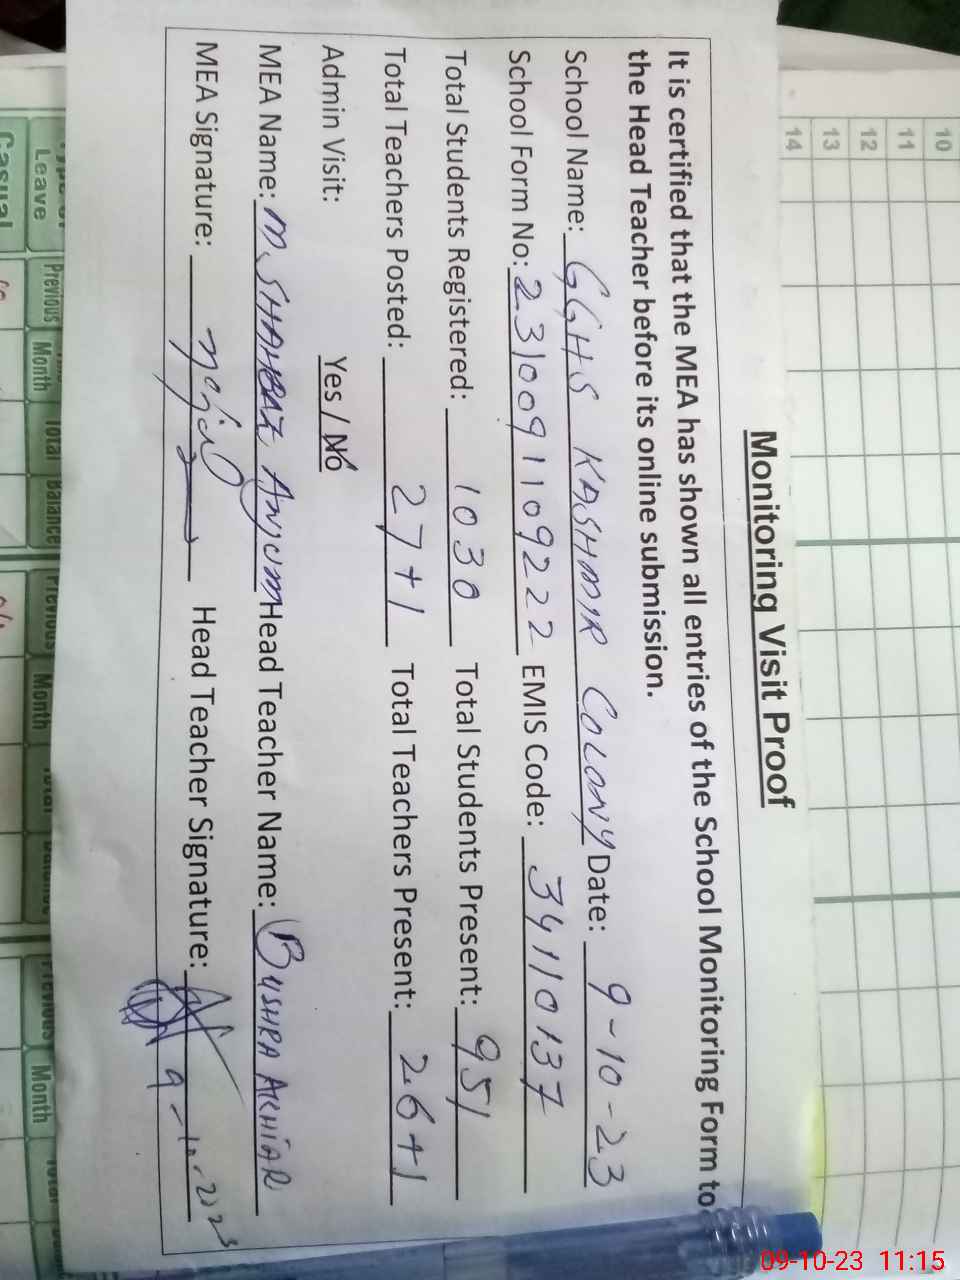 Monitoring Visit Proof
It is certified that the MEA has shown all entries of the School Monitoring Form to
the Head Teacher before its online submission.
School Name: GGHS KASHMIR COLONY Date: 9-10-23
School Form No: 2310091109222 EMIS Code: 34110137
Total Students Registered: 1030 Total Students Present: 951
Total Teachers Posted: 27+1 Total Teachers Present: 26+1
Admin Visit: Yes / No
MEA Name: M. SHAHBAZ Anjum Head Teacher Name: BUSHRA AKHTAR
MEA Signature: Head Teacher Signature: 9-10-2023
10
11
12
13
14
Leave Previous Month Total Balance Previous Month Previous Month
Casual
09-10-23 11:15